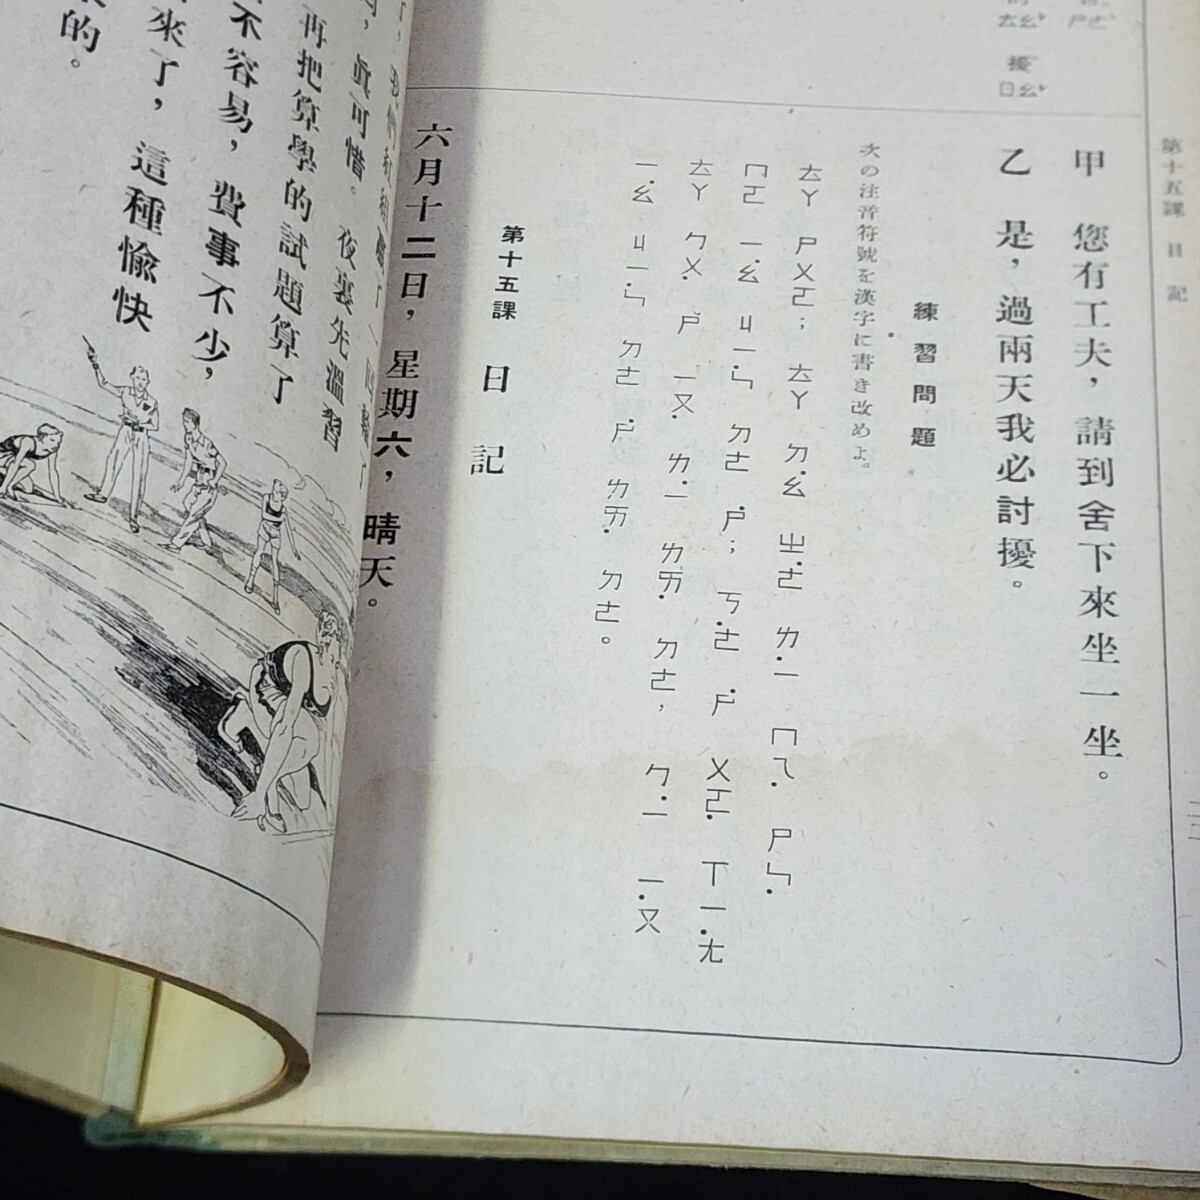 擾 ㄖㄠ
第十五課 日記
甲 您有工夫，請到舍下來坐一坐。
乙 是，過兩天我必討擾。
練習問題
次の注音符號を漢字に書き改めよ。
ㄊㄚ ㄕㄨㄛ； ㄊㄚ ㄉ·ㄠ ㄓ·ㄜ ㄌ·ㄧ ㄇㄟ· ㄕㄣ·
ㄇㄛ ㄧ·ㄠ ㄐㄧ·ㄣ ㄉㄜ ·ㄕ； ㄎ·ㄜ ·ㄕ ㄨㄛ· ㄒㄧ·ㄤ
ㄊㄚ ㄅㄨ· ·ㄕ ㄧㄡ ㄌ·ㄧ ㄌㄞ· ㄉㄜ， ㄅ·ㄧ ㄧ·ㄡ
ㄧ·ㄠ ㄐㄧ·ㄣ ㄉㄜ ·ㄕ ㄌㄞ· ㄉㄜ。
第十五課 日記
六月十二日，星期六，晴天。
眞可惜。夜裏先溫習
再把算學的試題算了
不容易，費事不少，
來了，這種愉快
的。